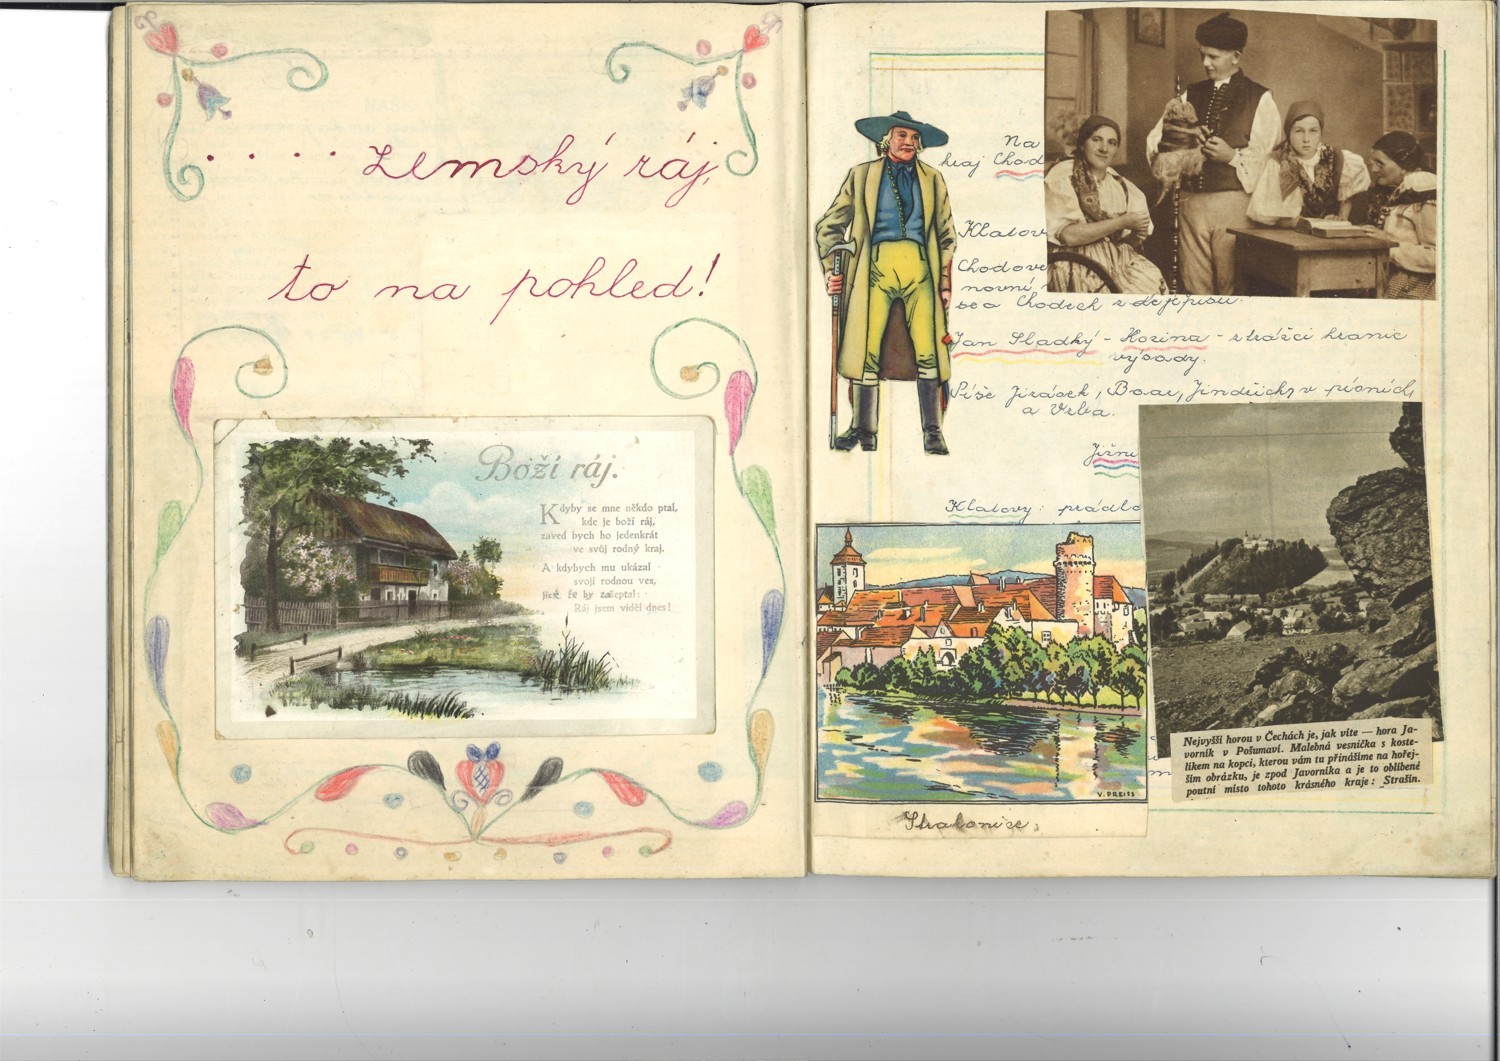 .... zemský ráj,
to na pohled!
Boží ráj.
Kdyby se mne někdo ptal,
kde je boží ráj,
zaved bych ho jedenkrát
ve svůj rodný kraj.
A kdybych mu ukázal
svoji rodnou ves,
jistě by zašeptal:
Ráj jsem viděl dnes!
Na
kraj Chod
Klatov
Chodové
novní
se o Chodech z dějepisu.
Jan Sladký - Kozina - strážci hranic
výsady.
Píše Jirásek, Baar, Jindřich v písních,
a Vrba.
Jižní
Klatovy: prádlo
V. PREISS
Strakonice.
Nejvyšší horou v Čechách je, jak víte — hora Ja-
vorník v Pošumaví. Malebná vesnička s koste-
líkem na kopci, kterou vám tu přinášíme na hořej-
ším obrázku, je zpod Javorníka a je to oblíbené
poutní místo tohoto krásného kraje: Strašín.